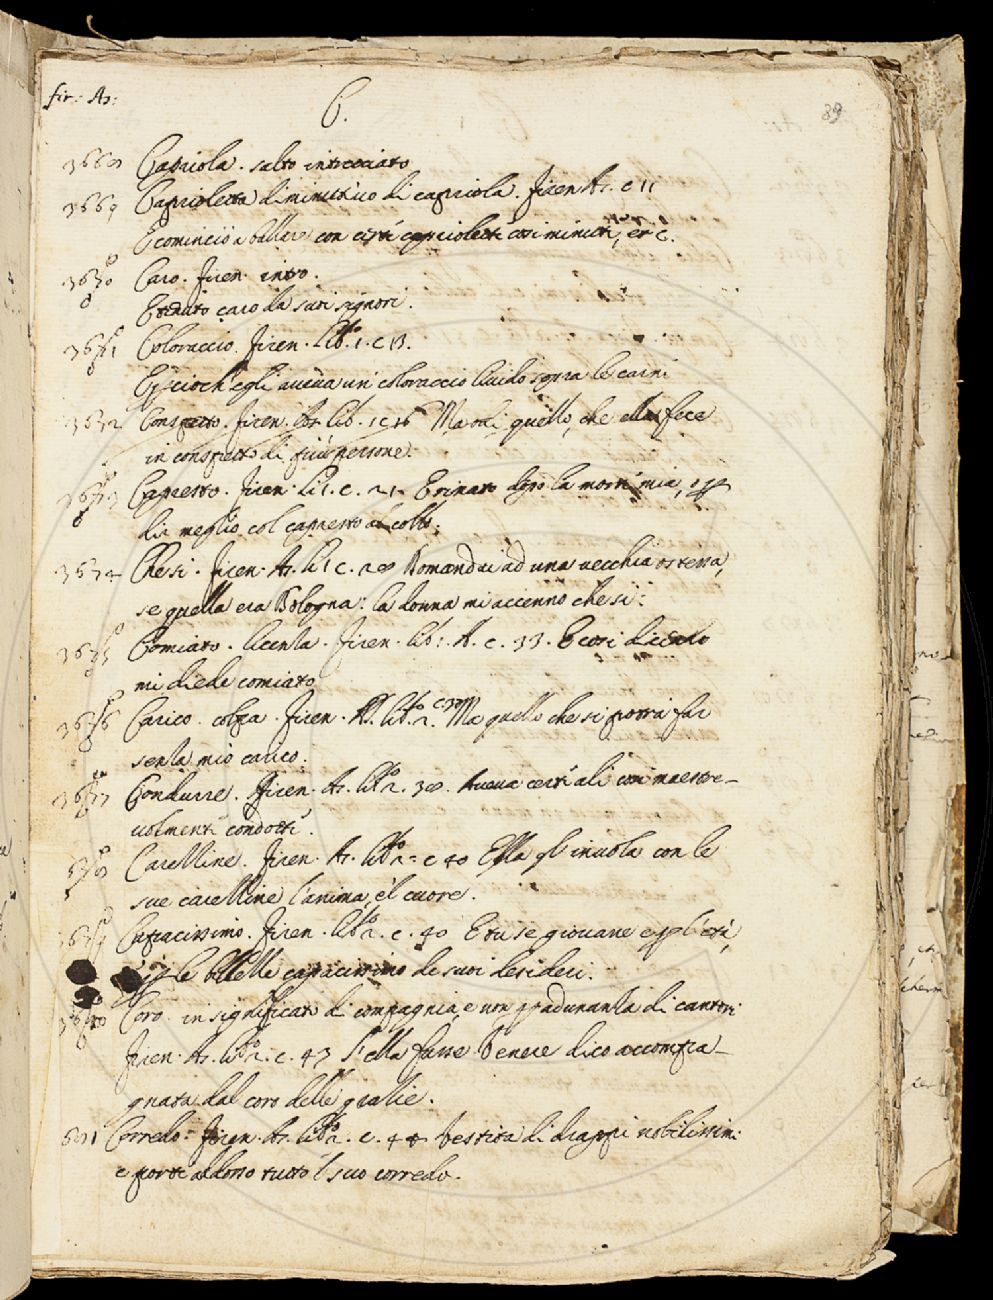 fir: As: C. 89
3668 Capriola. salto intrecciato
3669 Caprioletta diminutivo di capriola. firen As. c 11
E cominciò a ballare con certi caprioletti così minuti, et c.
3670 Caro. firen. intro.
E tenuto caro da suoi signori.
3671 Coloraccio. firen. lib.º 1. c 13.
Ep̃cioch' egli aveva un' coloraccio livido sopra le carni
3672 Conspetto. firen. As lib. 1 c 16 Ma odi quello, che ella fece
in conspetto di più persone.
3673 Capresto. firen. li 1. c. 21. E rinato dopo la morte mia,
dir meglio col capresto al collo:
3674 Che si. firen. As. li 1 c. 28 Domandai ad una vecchia ostessa,
se quella era Bologna: la donna mi accennò che si:
3675 Comiato. licenza. firen. lib: A. c. 33. E così dicendo
mi diede comiato
3676 Carico. colpa. firen. As. lib.º 2. c 38 Ma quello che si potrà far
senza mio carico.
3677 Condurre. firen. As. lib.º 2. 38. Aveva certi ali così maestre-
volmente condotte.
Carelline. firen. As. lib.º 2. c 40 Ella gl' invola con le
sue carelline l'anima, e'l cuore.
Capacissimo. firen. lib.º 2. c. 40 E tu se giovane e p̱ l' età,
e p̱ le bellezze capacissimo de suoi desideri.
3680 Coro. in significato di compagnia, e non p̱ adunanza di cantori
firen. As. lib.º 2. c. 43 S'ella fusse Venere dico accompa-
gnata dal coro delle grazie.
681 Corredo. firen. As. lib.º 2. c. 44 Vestita di drappi nobilissimi
e porti addosso tutto l suo corredo.